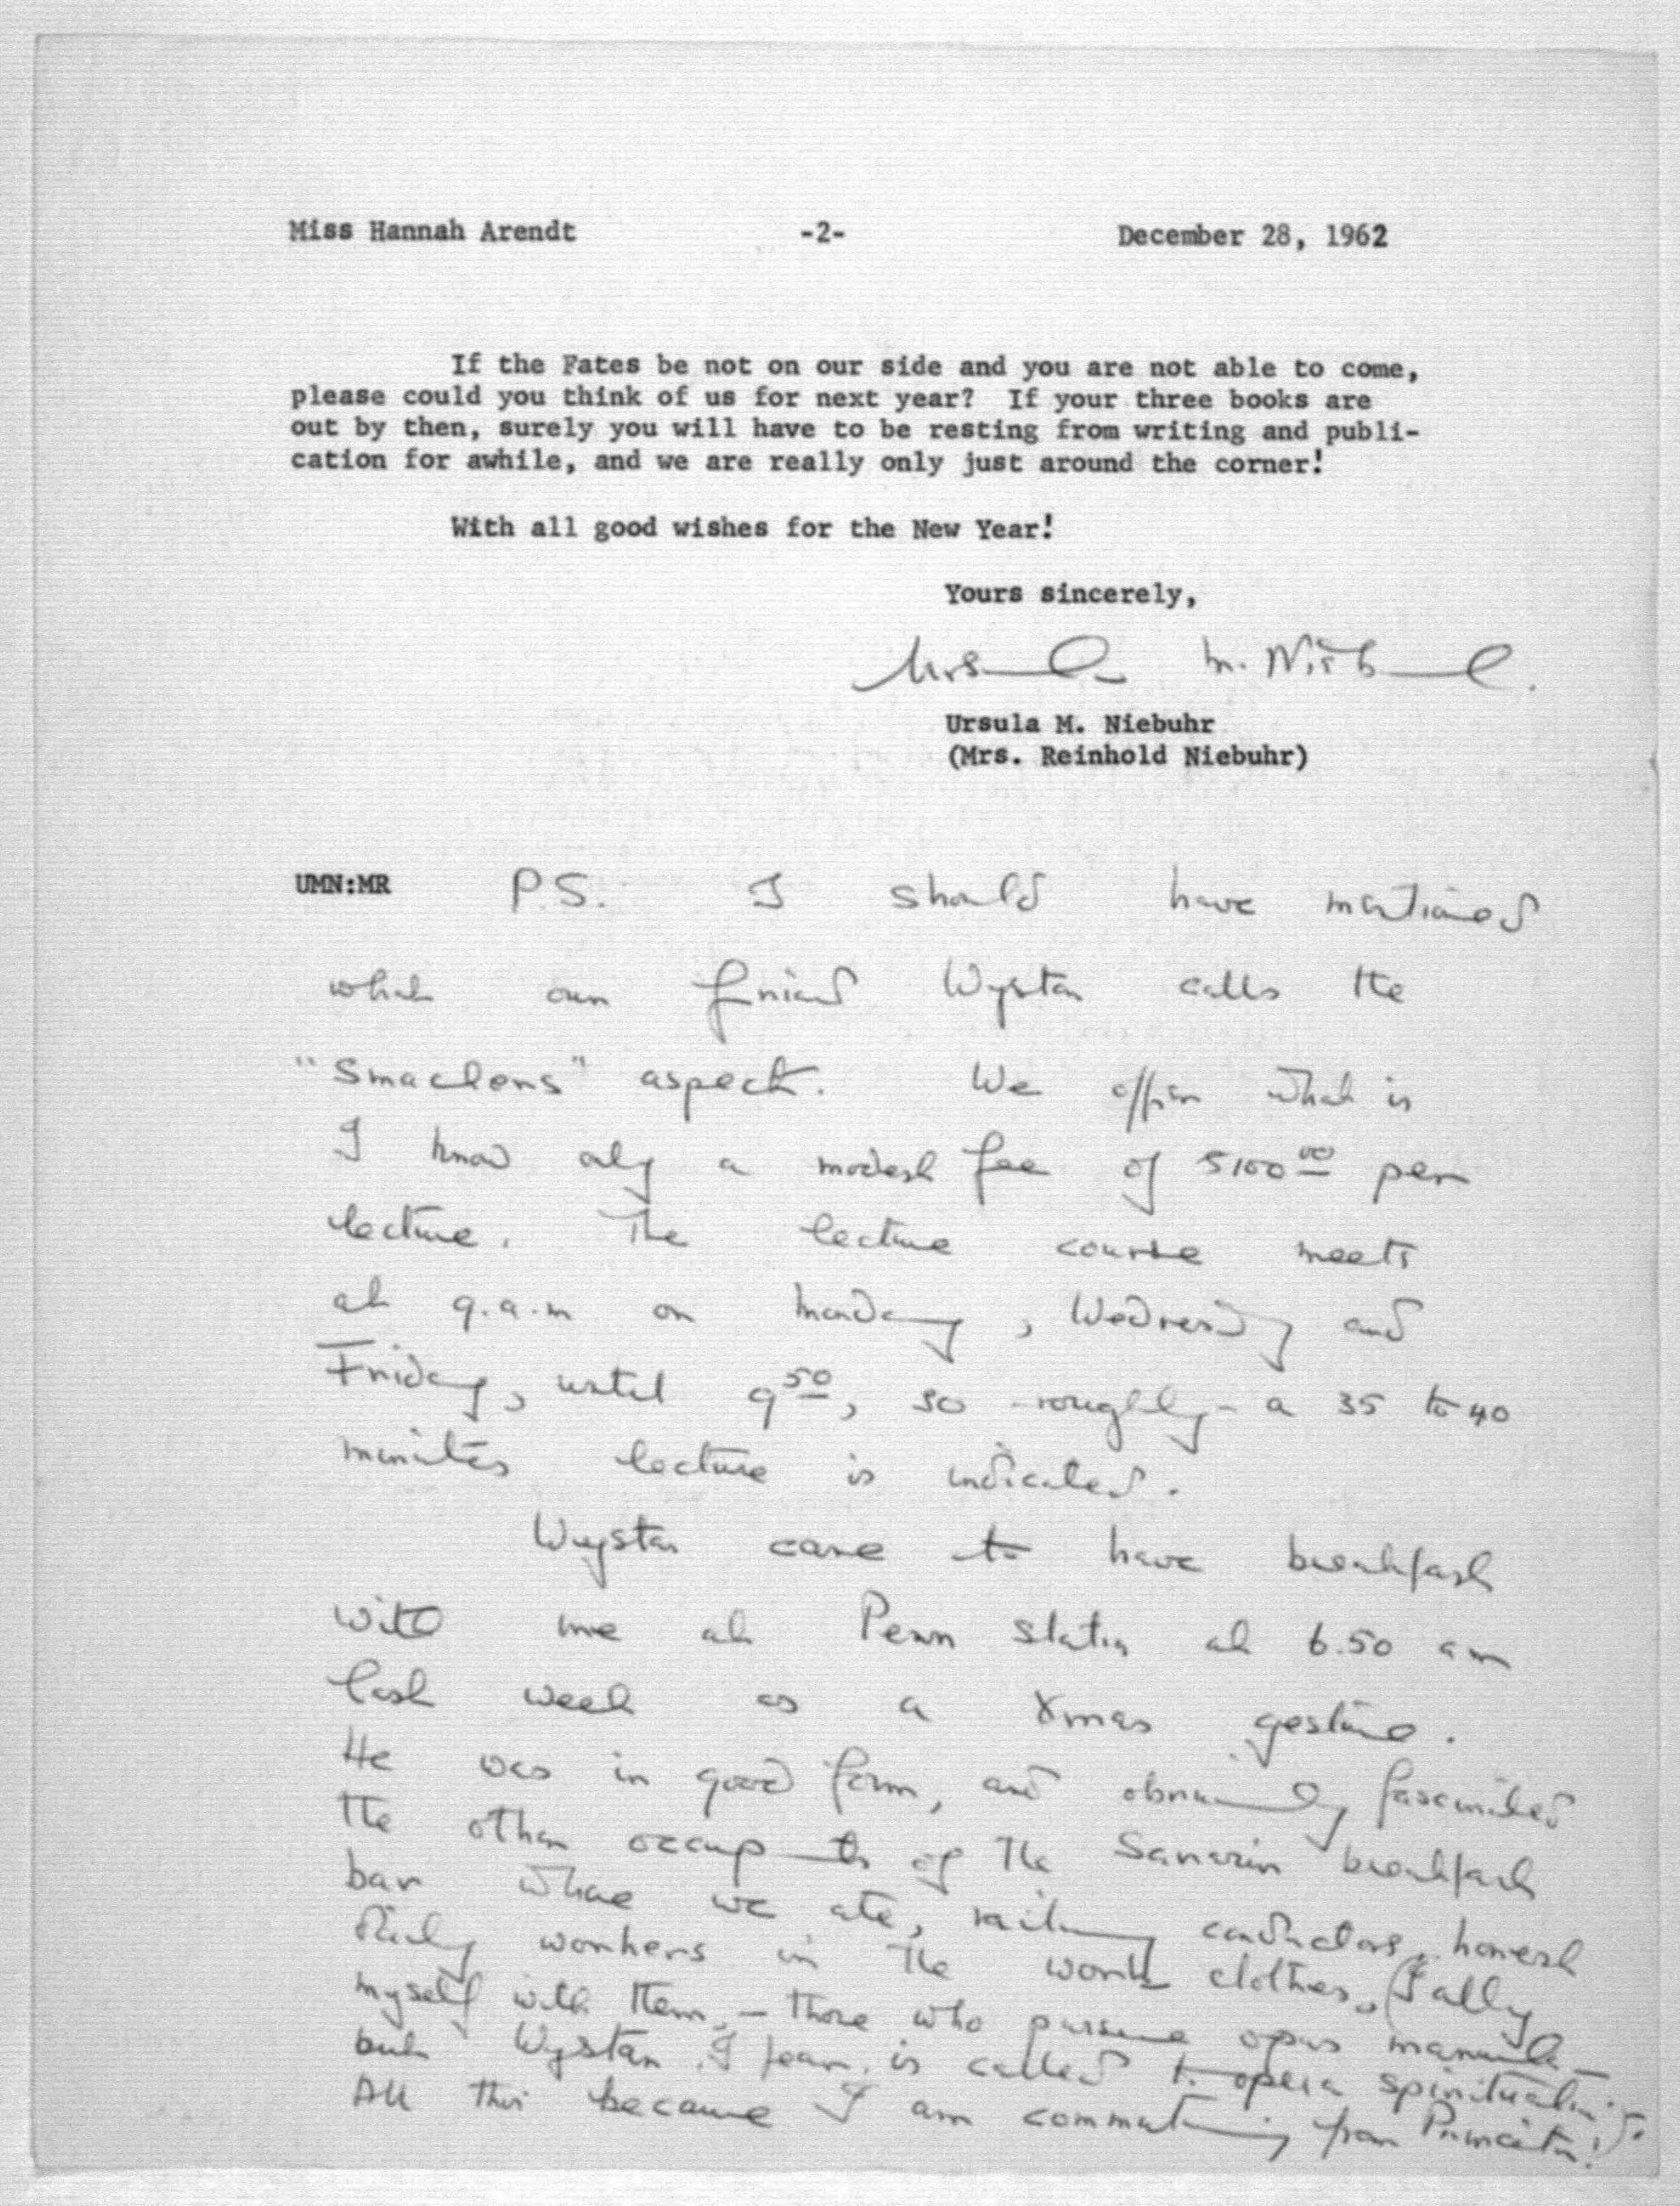 Miss Hannah Arendt -2- December 28, 1962
If the Fates be not on our side and you are not able to come,
please could you think of us for next year? If your three books are
out by then, surely you will have to be resting from writing and publi-
cation for awhile, and we are really only just around the corner!
With all good wishes for the New Year!
Yours sincerely,
Ursula M. Niebuhr.
Ursula M. Niebuhr
(Mrs. Reinhold Niebuhr)
UMN:MR P.S. I should have mentioned
what our friend Wystan calls the
"Smackers" aspect. We offer what is
I know only a modest fee of $100 00 per
lecture. The lecture course meets
at 9.a.m on Monday, Wednesday and
Friday, until 9 50, so - roughly - a 35 to 40
minutes lecture is indicated.
Wystan came to have breakfast
with me at Penn Station at 6.50 am
last week as a Xmas gesture.
He was in good form, and obviously fascinated
the other occupants of the Savarin breakfast
bar where we ate, railway conductors, honest
workers in the clothes, (I ally
myself with them, - those who pursue opus manuale -
but Wystan, I fear, is called to opera spiritualia!).
All this because I am commuting from Princeton!